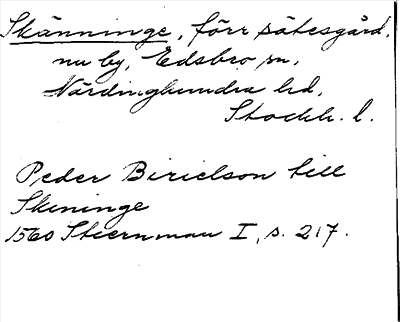 Skänninge, förr sätesgård,
nu by, Edsbro sn,
Närdinghundra hd,
Stockh. l.
Peder Birielson till
Skeninge
1560 Stiernman I, s. 217.